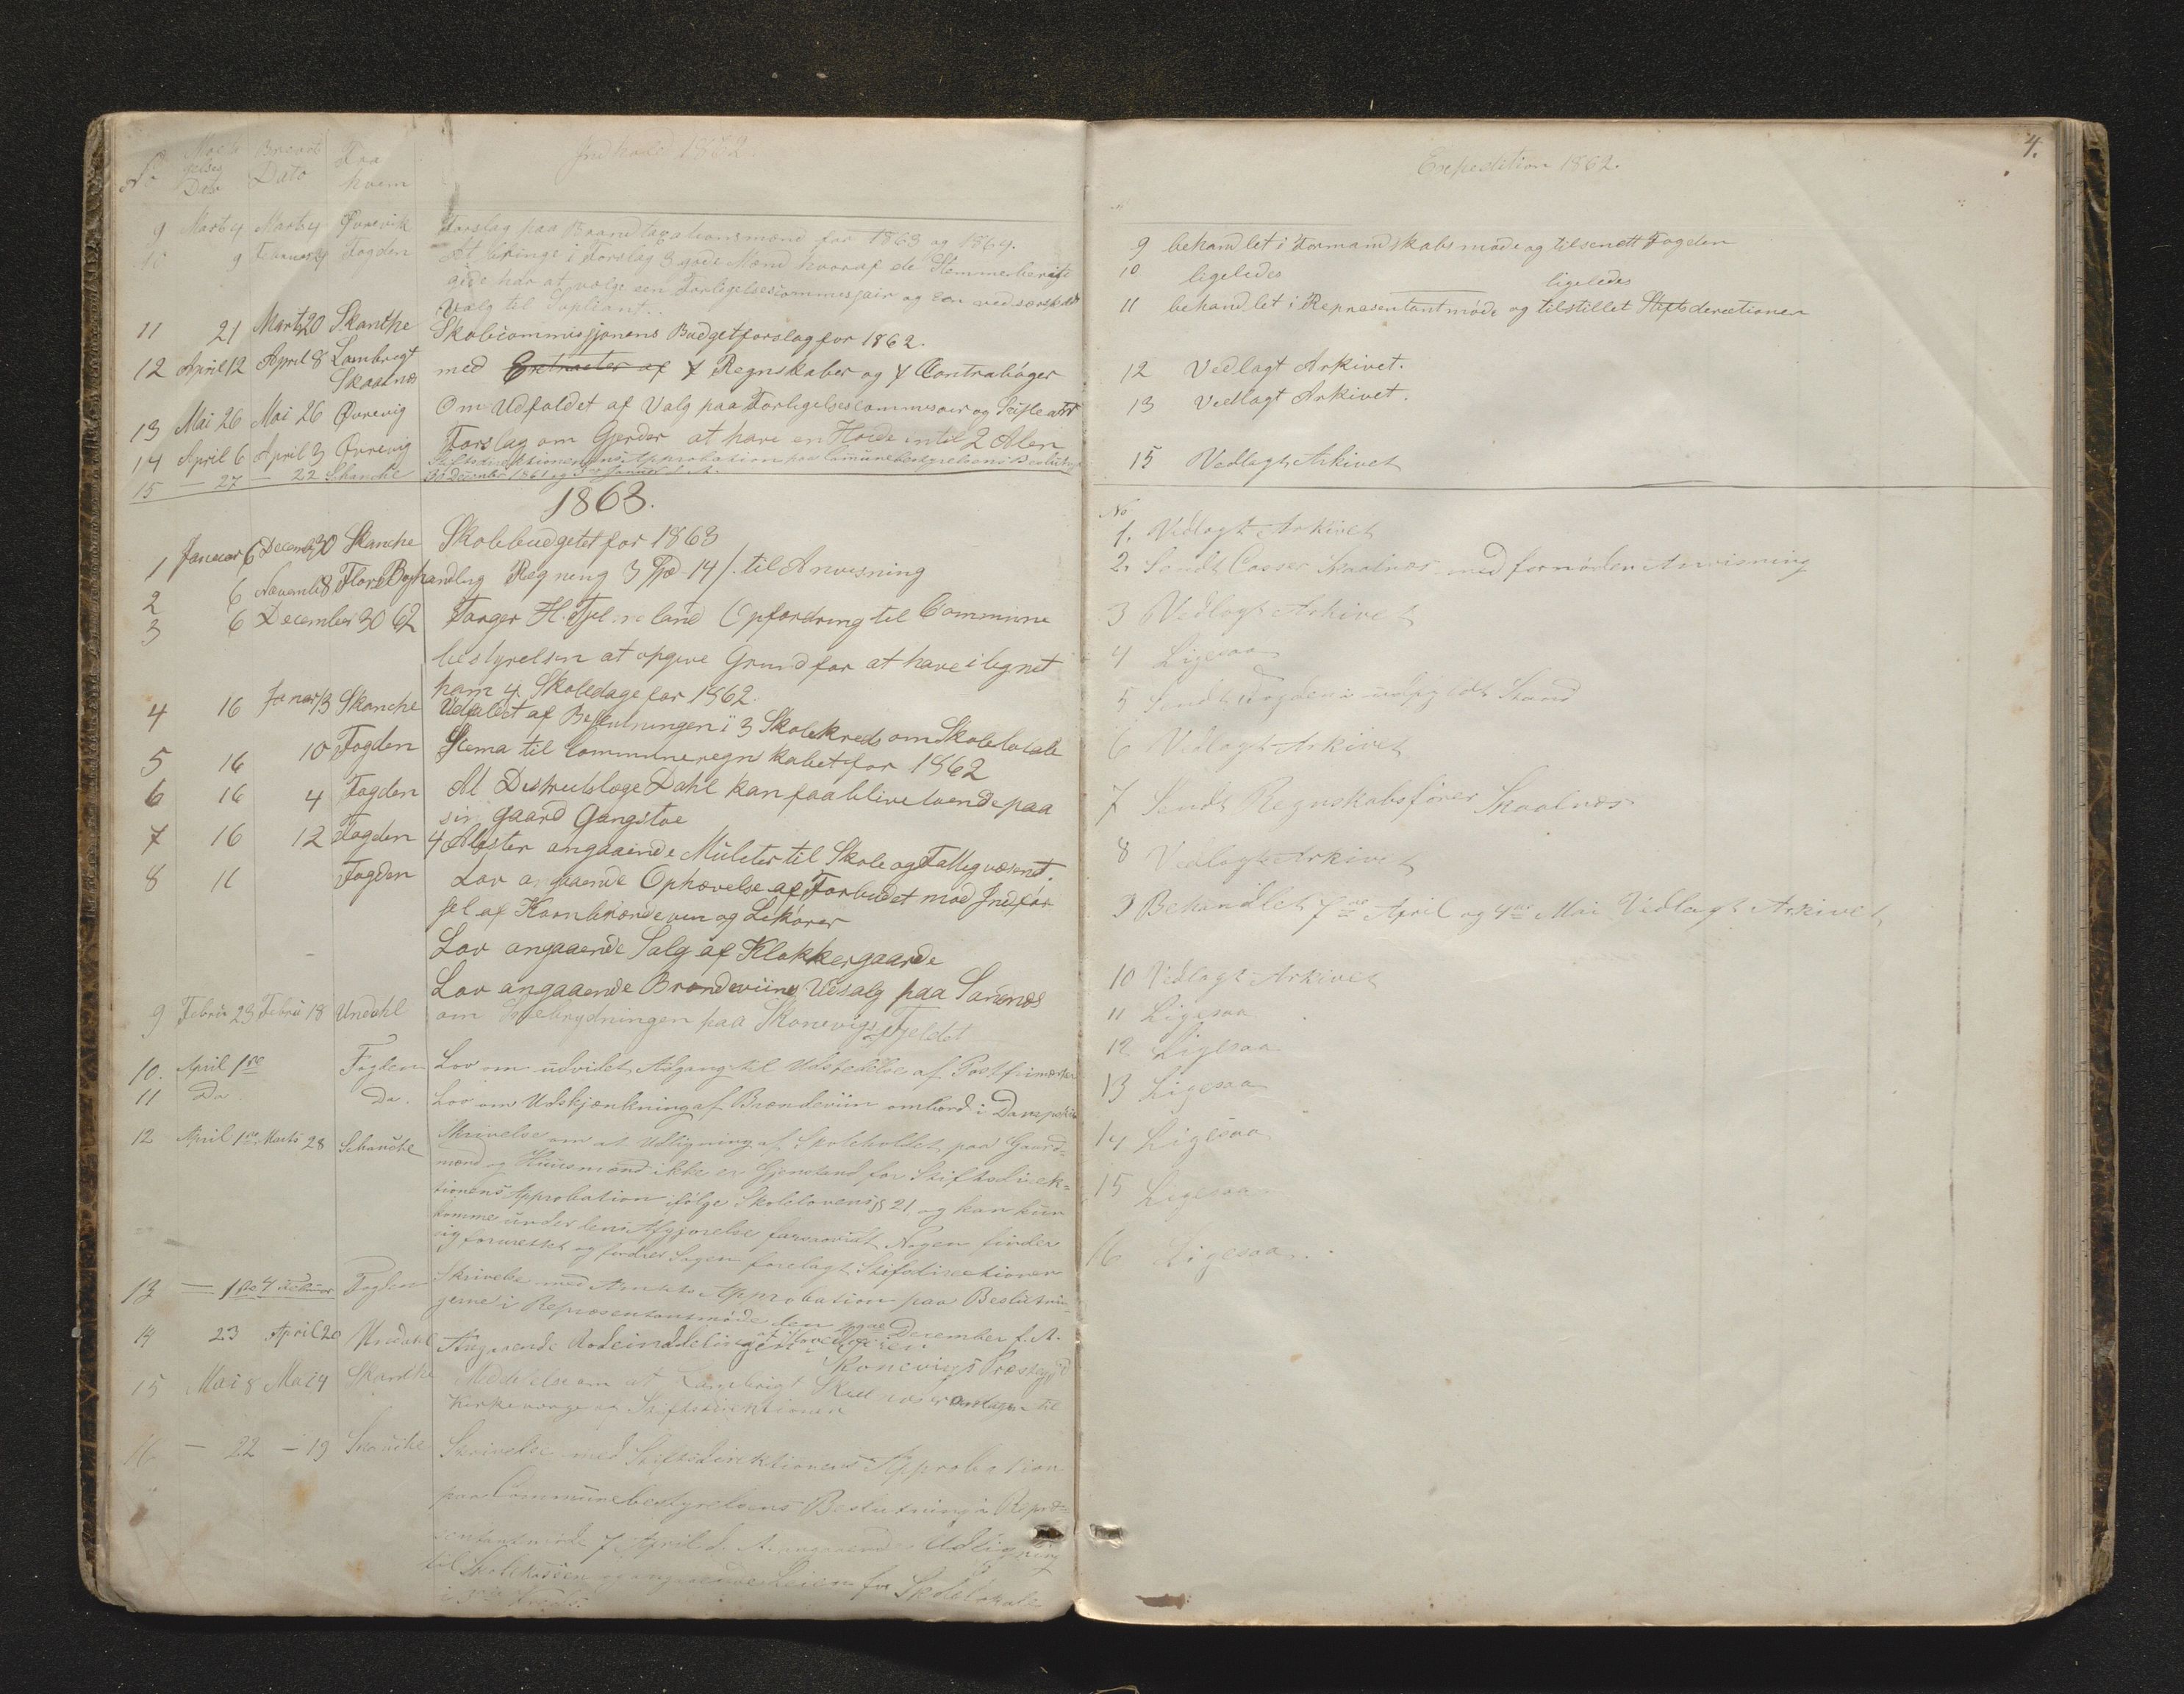 No Dato Brevets Dato Fra hvem Indhold 1862.
9 Marts 4 Marts 4 Øvrevik Forslag paa Brandtaxationsmænd for 1863 og 1864.
10 9 Februar 4 Fogden At bringe i Forslag 3 gode Mænd hvoraf de Stemmeberett
gede har at vælge een Forligelsescommissair og een ved særskilt
Valg til Supliant..
11 21 Marts 20 Skanche Skolecommissjonens Budgetforslag for 1862.
12 April 12 April 8 Lambrigt Skaalnæs med Extracter af 4 Regnskaber og 4 Contrabøger
13 Mai 26 Mai 26 Øvrevig Om Udfaldet af Valg paa Forligelsescommisær og
14 April 6 April 3 Øvrevig Forslag om Gjerder at have en Høide intil 2 Alen
15 — 27 — 22 Skanche Stiftsdirektionens Approbation paa Communebestyrelsens Beslutn
30 December 1861 og Januar
1863.
1 Januar 6 December 30 Skanche Skolebudgetet for 1863
2 6 November 8 Flors Boghandling Regning 3 Spd 14 /. til Anvisning
3 6 December 30 62 Torger H. Opfordring til Commune
bestyrelsen at opgive Grund for at have ilignet
ham 4 Skoledage for 1862.
4 16 Januar 13 Skanche Udfaldet af Beslutningen i 3 Skolekreds om Skolelokale
5 16 10 Fogden Skema til Communeregnskabet for 1862
6 16 4 Fogden At Districtslæge Dahl kan faa blive boende paa
sin gaard Gangstøe
7 16 12 Fogden 4 angaaende Mulcter til Skole og Fattigvæsnet.
8 16 Fogden Lov angaaende Ophævelse af Forbudet mod Indfør
sel af Kornbrændeviin og Likører
Lov angaaende Salg af Klokkergaarde
Lov angaaende Brændeviins Udsalg paa Sandnæs
9 Febru 23 Febru 18 Undahl om paa Skonevigsfjeldet
10. April 1ste Fogden Lov om udvidet Adgang til Udstedelse af Postfrimærker
11 Do. Do. Lov om Udskjænkning af Brændeviin ombord i Dampskib
12 April 1ste Marts 28 Schanche Skrivelse om at Udligning af Skoleholdet paa Gaard-
mænd og Huusmænd ikke er Gjenstand for Stiftsdirek-
tionens Approbation ifølge Skolelovens § 21 og kan kun
komme under dens Afgjørelse forsaavidt Nogen finder
sig forurettet og fordrer Sagen forelagt Stiftsdirectionen
13 — 1ste 4 Februar Fogden Skrivelse med Amtets Approbation paa Beslutnin-
gerne i Repræsentantmøde den December f. A.
14 23 April 20 Undahl Angaaende Rodeinddelingen
Skonevigs Præstegjd
15 Mai 8 Mai 4 Skanche Meddelelse om at Lambrigt Skaalnæs er antagen til
Kirkeværge af Stiftsdirektionen
16 — 22 — 19 Schanche Skrivelse med Stiftsdirektionens Approbation
paa Communebestyrelsens Beslutning i Repræ-
sentantmøde 7 April d. A. angaaende Udligning
til Skolekassen og angaaende Leien for Skolelokale
i Kreds.
4.
Expedition 1862.
9 behandlet i Formandskabsmøde og tilsendt Fogden
10 ligeledes ligeledes
11 behandlet i Repræsentantmøde og tilstillet Stiftsderectionen
12 Vedlagt Arkivet.
13 Vedlagt Arkivet.
15 Vedlagt Arkivet
No
1. Vedlagt Arkivet
2. Sendt Casser Skaalnæs med fornøden Anvisning
3 Vedlagt Arkivet
4 Ligesaa
5 Sendt Fogden i udfyldt Stand
6 Vedlagt Arkivet
7 Sendt Regnskabsfører Skaalnæs
8 Vedlagt Arkivet
9 Behandlet 7de April og 4de Mai Vedlagt Arkivet
10 Vedlagt Arkivet
11 Ligesaa
12 Ligesaa
13 Ligesaa
14 Ligesaa
15 Ligesaa
16 Ligesaa